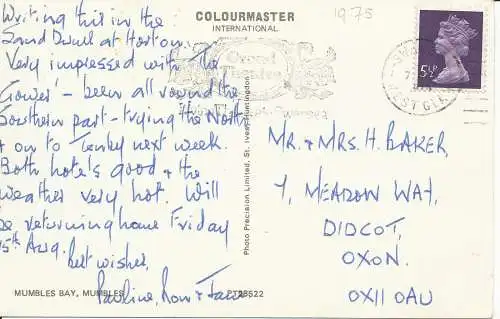 Writing this in the
Sand Dunes at Horton.
Very impressed with the
Gower - been all round the
Southern part - trying the North
& on to Tenby next week.
Both hotels good & the
weather very hot. Will
be returning home Friday
15th Aug.
best wishes,
Pauline, Ron &
COLOURMASTER
INTERNATIONAL
1975
5½P
Photo Precision Limited, St. Ives, Huntingdon
MR. & MRS. H. BAKER,
7, MEADOW WAY,
DIDCOT,
OXON.
OX11 0AU
MUMBLES BAY, MUMBLES